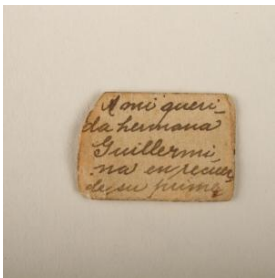 A mi queri_
da hermana
Guillermi_
na en recuer_
de su prima